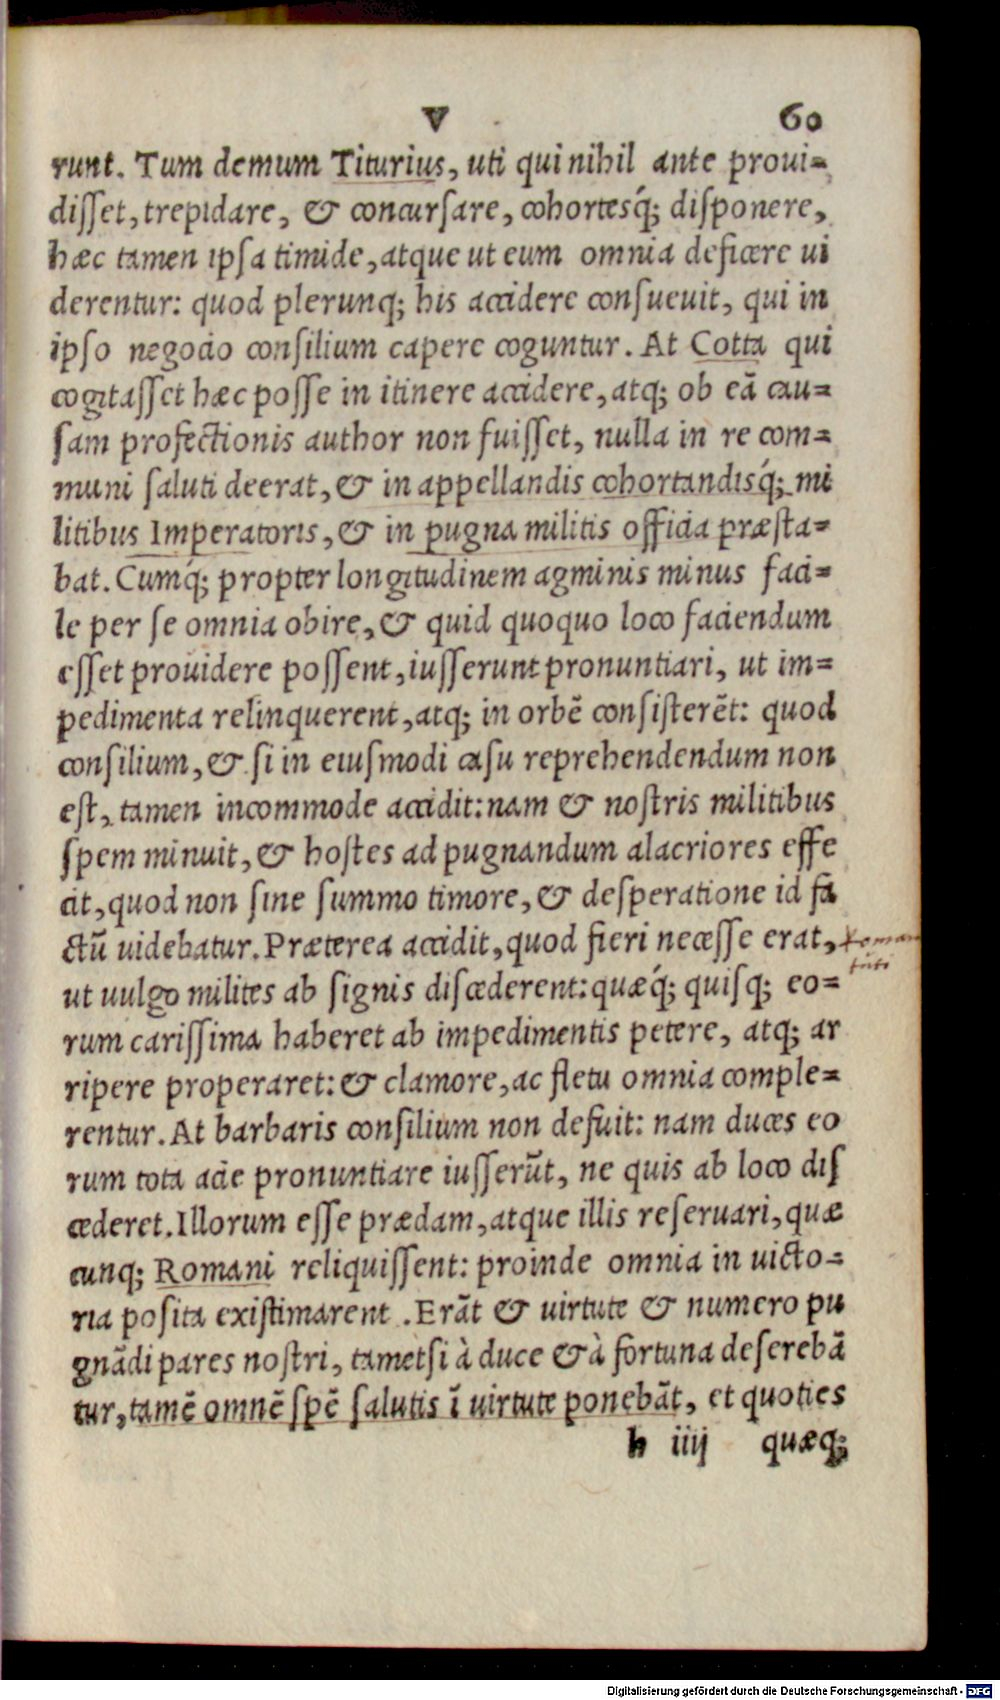 V 60
runt. Tum demum Titurius, uti qui nihil ante proui=
disset, trepidare, & concursare, cohortesq́; disponere,
hæc tamen ipsa timide, atque ut eum omnia deficere ui
derentur: quod plerunq; his accidere consueuit, qui in
ipso negocio consilium capere coguntur. At Cotta qui
cogitasset hæc posse in itinere accidere, atq; ob eā cau=
sam profectionis author non fuisset, nulla in re com=
muni saluti deerat, & in appellandis cohortandisq́; mi
litibus Imperatoris, & in pugna militis officia præsta=
bat. Cumq́; propter longitudinem agminis minus faci=
le per se omnia obire, & quid quoquo loco faciendum
esset prouidere possent, iusserunt pronuntiari, ut im=
pedimenta relinquerent, atq; in orbē consisterēt: quod
consilium, & si in eiusmodi casu reprehendendum non
est, tamen incommode accidit: nam & nostris militibus
spem minuit, & hostes ad pugnandum alacriores effe
cit, quod non sine summo timore, & desperatione id fa
ctū uidebatur. Præterea accidit, quod fieri necesse erat,
ut uulgo milites ab signis discederent: quæq́; quisq; eo=
rum carissima haberet ab impedimentis petere, atq; ar
ripere properaret: & clamore, ac fletu omnia comple=
rentur. At barbaris consilium non defuit: nam duces eo
rum tota acie pronuntiare iusserūt, ne quis ab loco dis
cederet. Illorum esse prædam, atque illis reseruari, quæ
cunq; Romani reliquissent: proinde omnia in uicto=
ria posita existimarent. Erāt & uirtute & numero pu
gnādi pares nostri, tametsi à duce & à fortuna deserebā
tur, tamē omnē spē salutis ī uirtute ponebāt, et quoties
h iiij quæq;
Digitalisierung gefördert durch die Deutsche Forschungsgemeinschaft - DFG